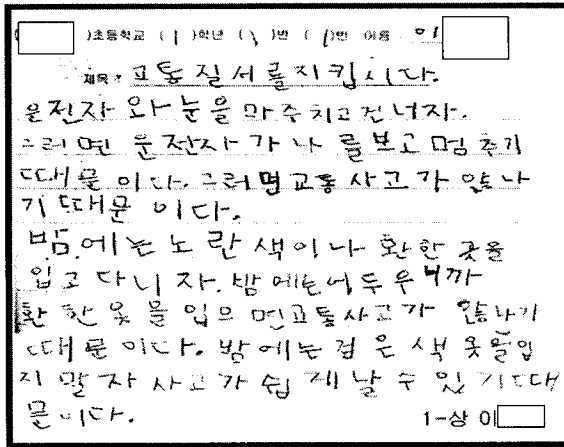 )초등학교 ( 1 )학년 ( )번 ( )번 이름 이
제목: 교통질서를지킵시다.
운전자와눈을마주치고건너자.
그러면 운전자가나를보고멈추기
때문이다. 그러면교통사고가 않나
기때문이다.
밤에는노란색이나 환한 옷을
입고다니자. 밤에는어두우니까
환한옷을입으면교통사고가 않나기
때문이다. 밤에는검은색옷을입
지말자사고가쉽게날수있기때
문이다.
1-상 이